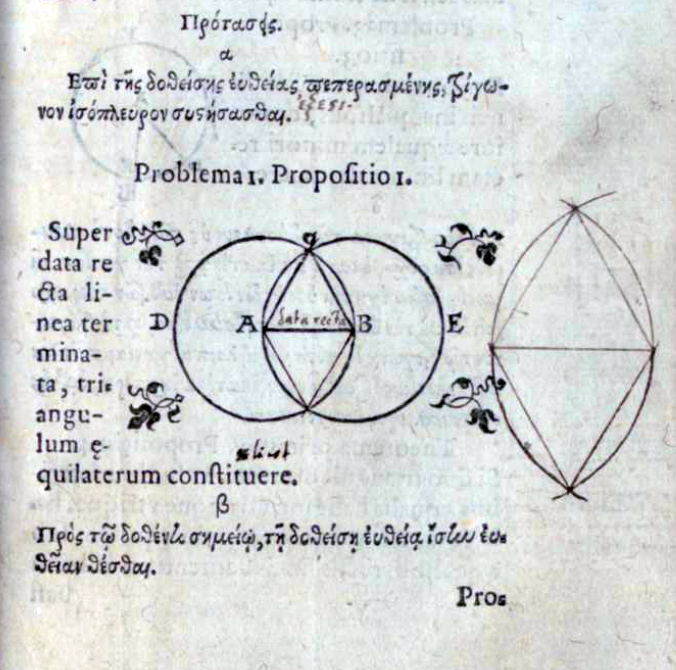 Πρότασις.
α
Ἐπὶ τῆς δοθείσης εὐθείας πεπερασμένης, τρίγω-
νον ἰσόπλευρον συστήσασθαι.
Problema 1. Propositio 1.
Super
data re
cta li-
nea ter
mina-
ta, tri-
angu-
lum ę
quilaterum constituere.
C
D A data recta B E
β
Πρὸς τῷ δοθέντι σημείῳ, τῇ δοθείσῃ εὐθείᾳ ἴσην εὐ-
θεῖαν θέσθαι.
Pros